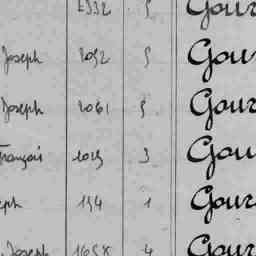 2332 5 Gour
Joseph 2052 5 Gour
Joseph 2061 5 Gour
François 1025 3 Gour
eph 154 1 Gour
Joseph 1658 4 Gour